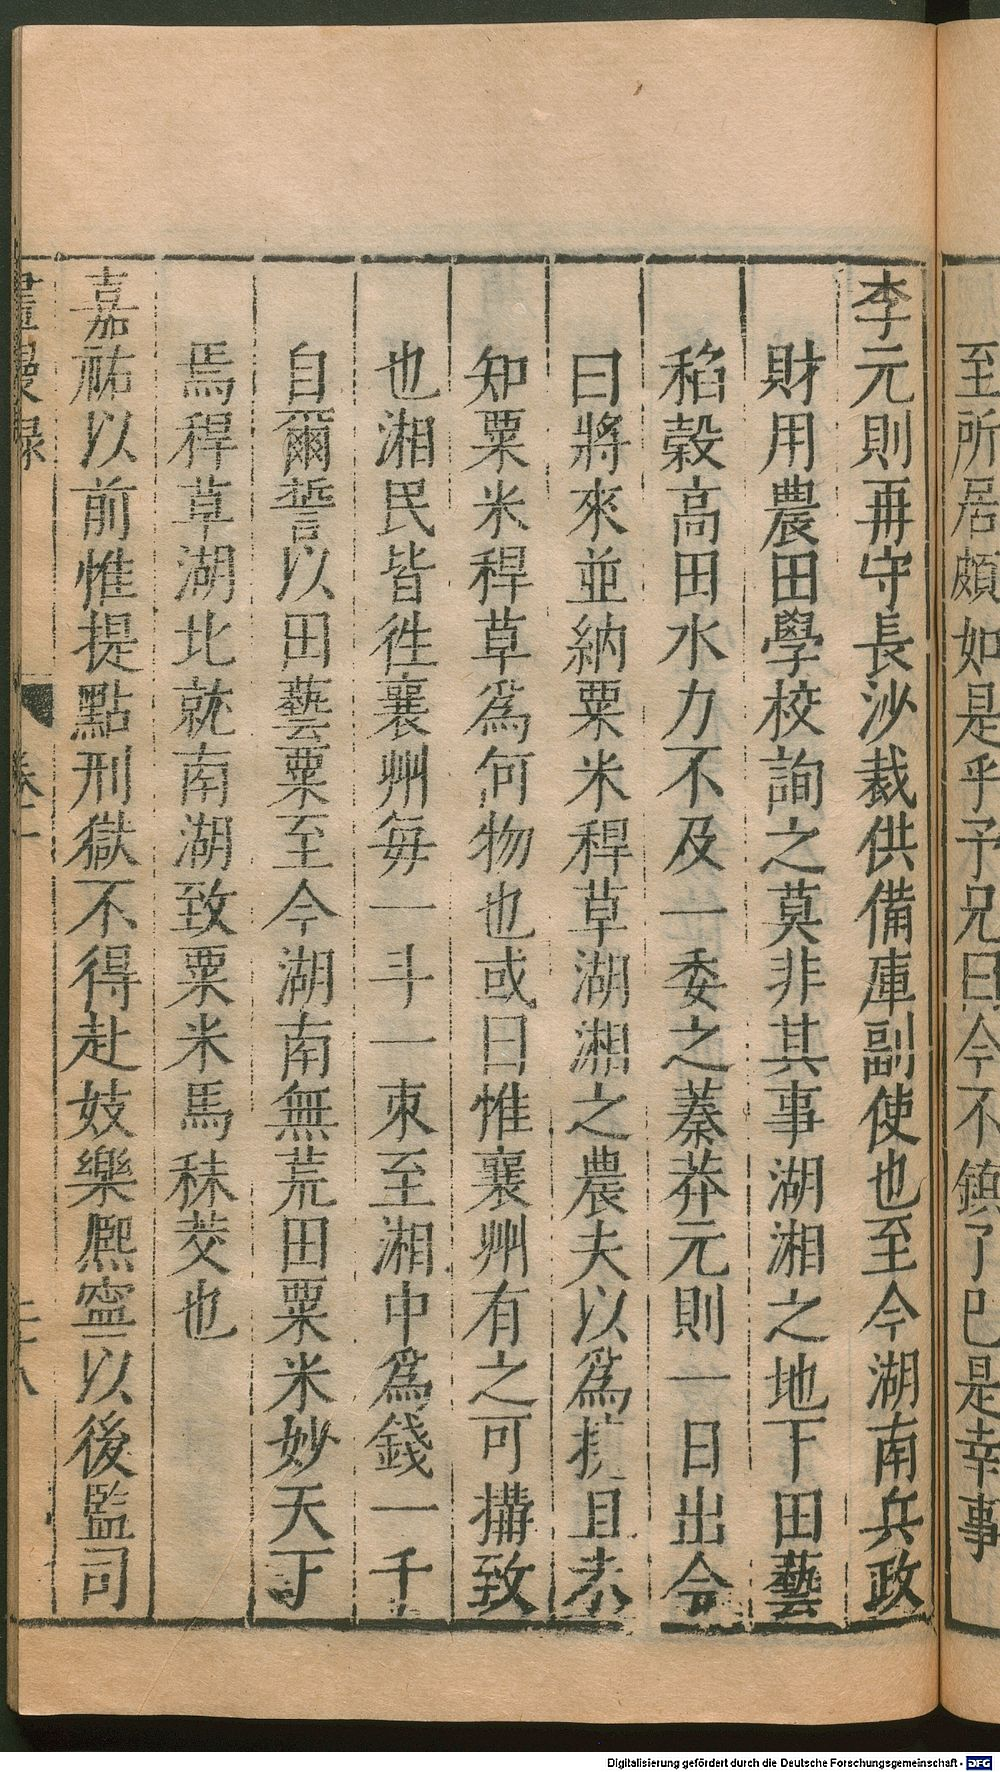 至所居頗如是乎予兄曰今不鎮了已是幸事
李元則再守長沙裁供備庫副使也至今湖南兵政
財用農田學校詢之莫非其事湖湘之地下田藝
稻穀高田水力不及一委之蓁莽元則一日出令
曰將來並納粟米稈草湖湘之農夫以爲擾且未
知粟米稈草爲何物也或曰惟襄州有之可搆致
也湘民皆徃襄州每一斗一束至湘中爲錢一千
自爾誓以田藝粟至今湖南無荒田粟米妙天下
焉稈草湖北就南湖致粟米馬秣茭也
嘉祐以前惟提點刑獄不得赴妓樂熈寧以後監司
畫墁錄
卷一
Digitalisierung gefördert durch die Deutsche Forschungsgemeinschaft - DFG